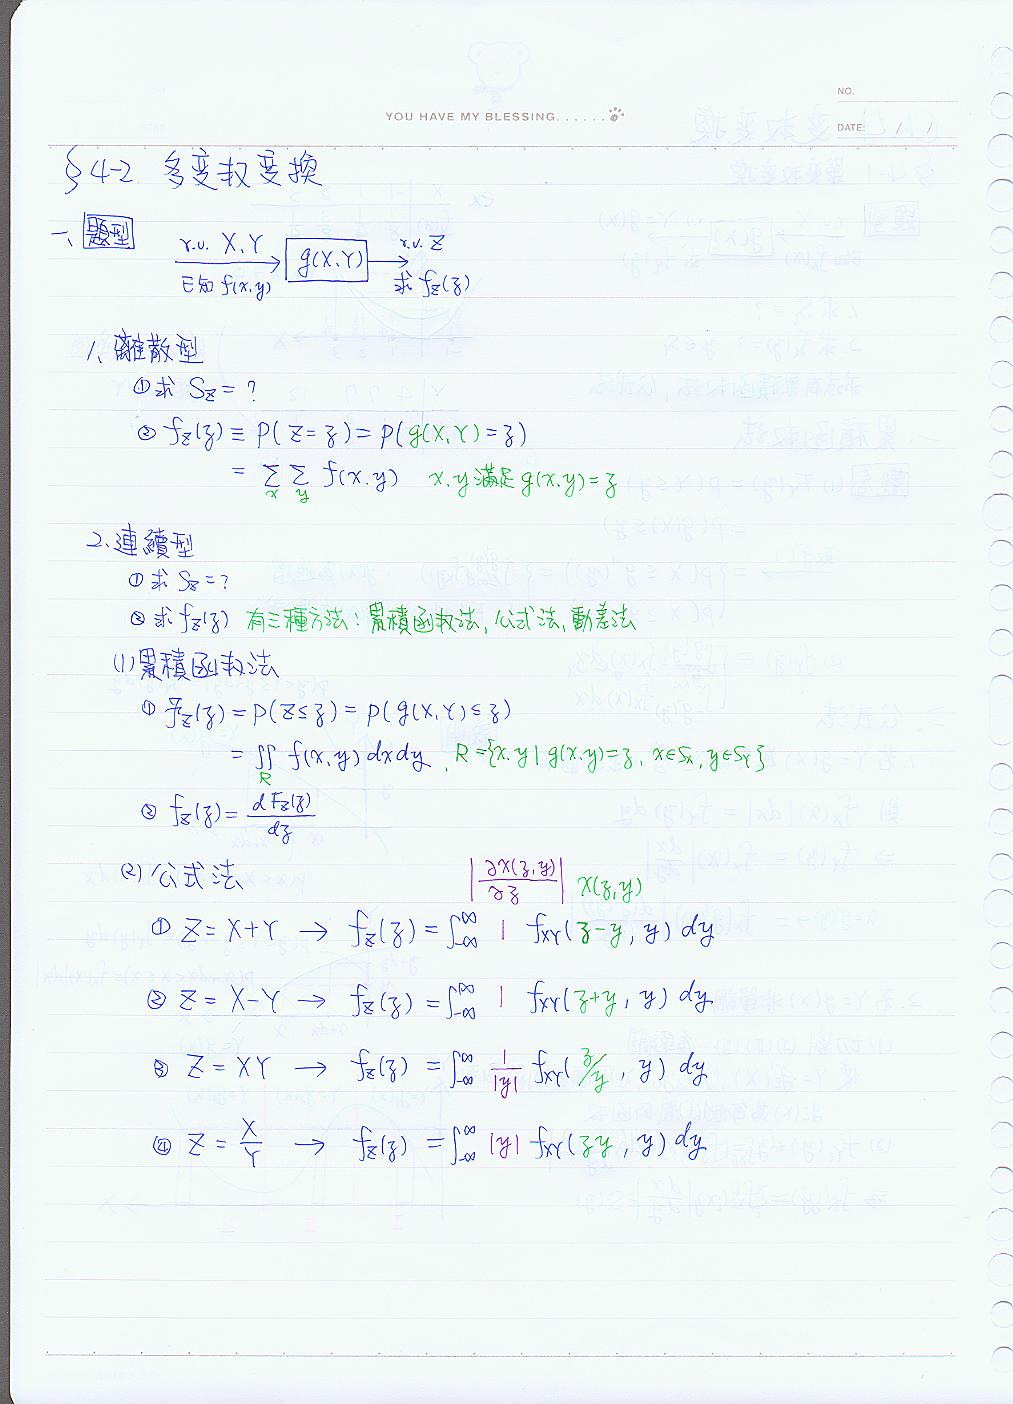 NO.
YOU HAVE MY BLESSING......
DATE: / /
§4-2 多变权变換
一、題型
r.v. X,Y → g(X,Y) → r.v. Z
已知 f(x,y) 求 f_Z(z)
1、離散型
①求 S_Z = ?
② f_Z(z) ≡ P(Z=z) = P(g(X,Y)=z)
= Σ_x Σ_y f(x,y) x,y滿足 g(x,y)=z
2、連續型
①求 S_Z = ?
②求 f_Z(z) 有三種方法:累積函权法,公式法,動差法
(1)累積函权法
① F_Z(z) = P(Z≤z) = P(g(X,Y)≤z)
= ∬_R f(x,y) dxdy , R={x,y | g(x,y)=z, x∈S_X, y∈S_Y}
② f_Z(z) = dF_Z(z)/dz
(2)公式法 |∂x(z,y)/∂z| x(z,y)
① Z=X+Y → f_Z(z) = ∫_{-∞}^{∞} 1 f_XY(z-y, y) dy
② Z=X-Y → f_Z(z) = ∫_{-∞}^{∞} 1 f_XY(z+y, y) dy
③ Z=XY → f_Z(z) = ∫_{-∞}^{∞} 1/|y| f_XY(z/y, y) dy
④ Z=X/Y → f_Z(z) = ∫_{-∞}^{∞} |y| f_XY(zy, y) dy